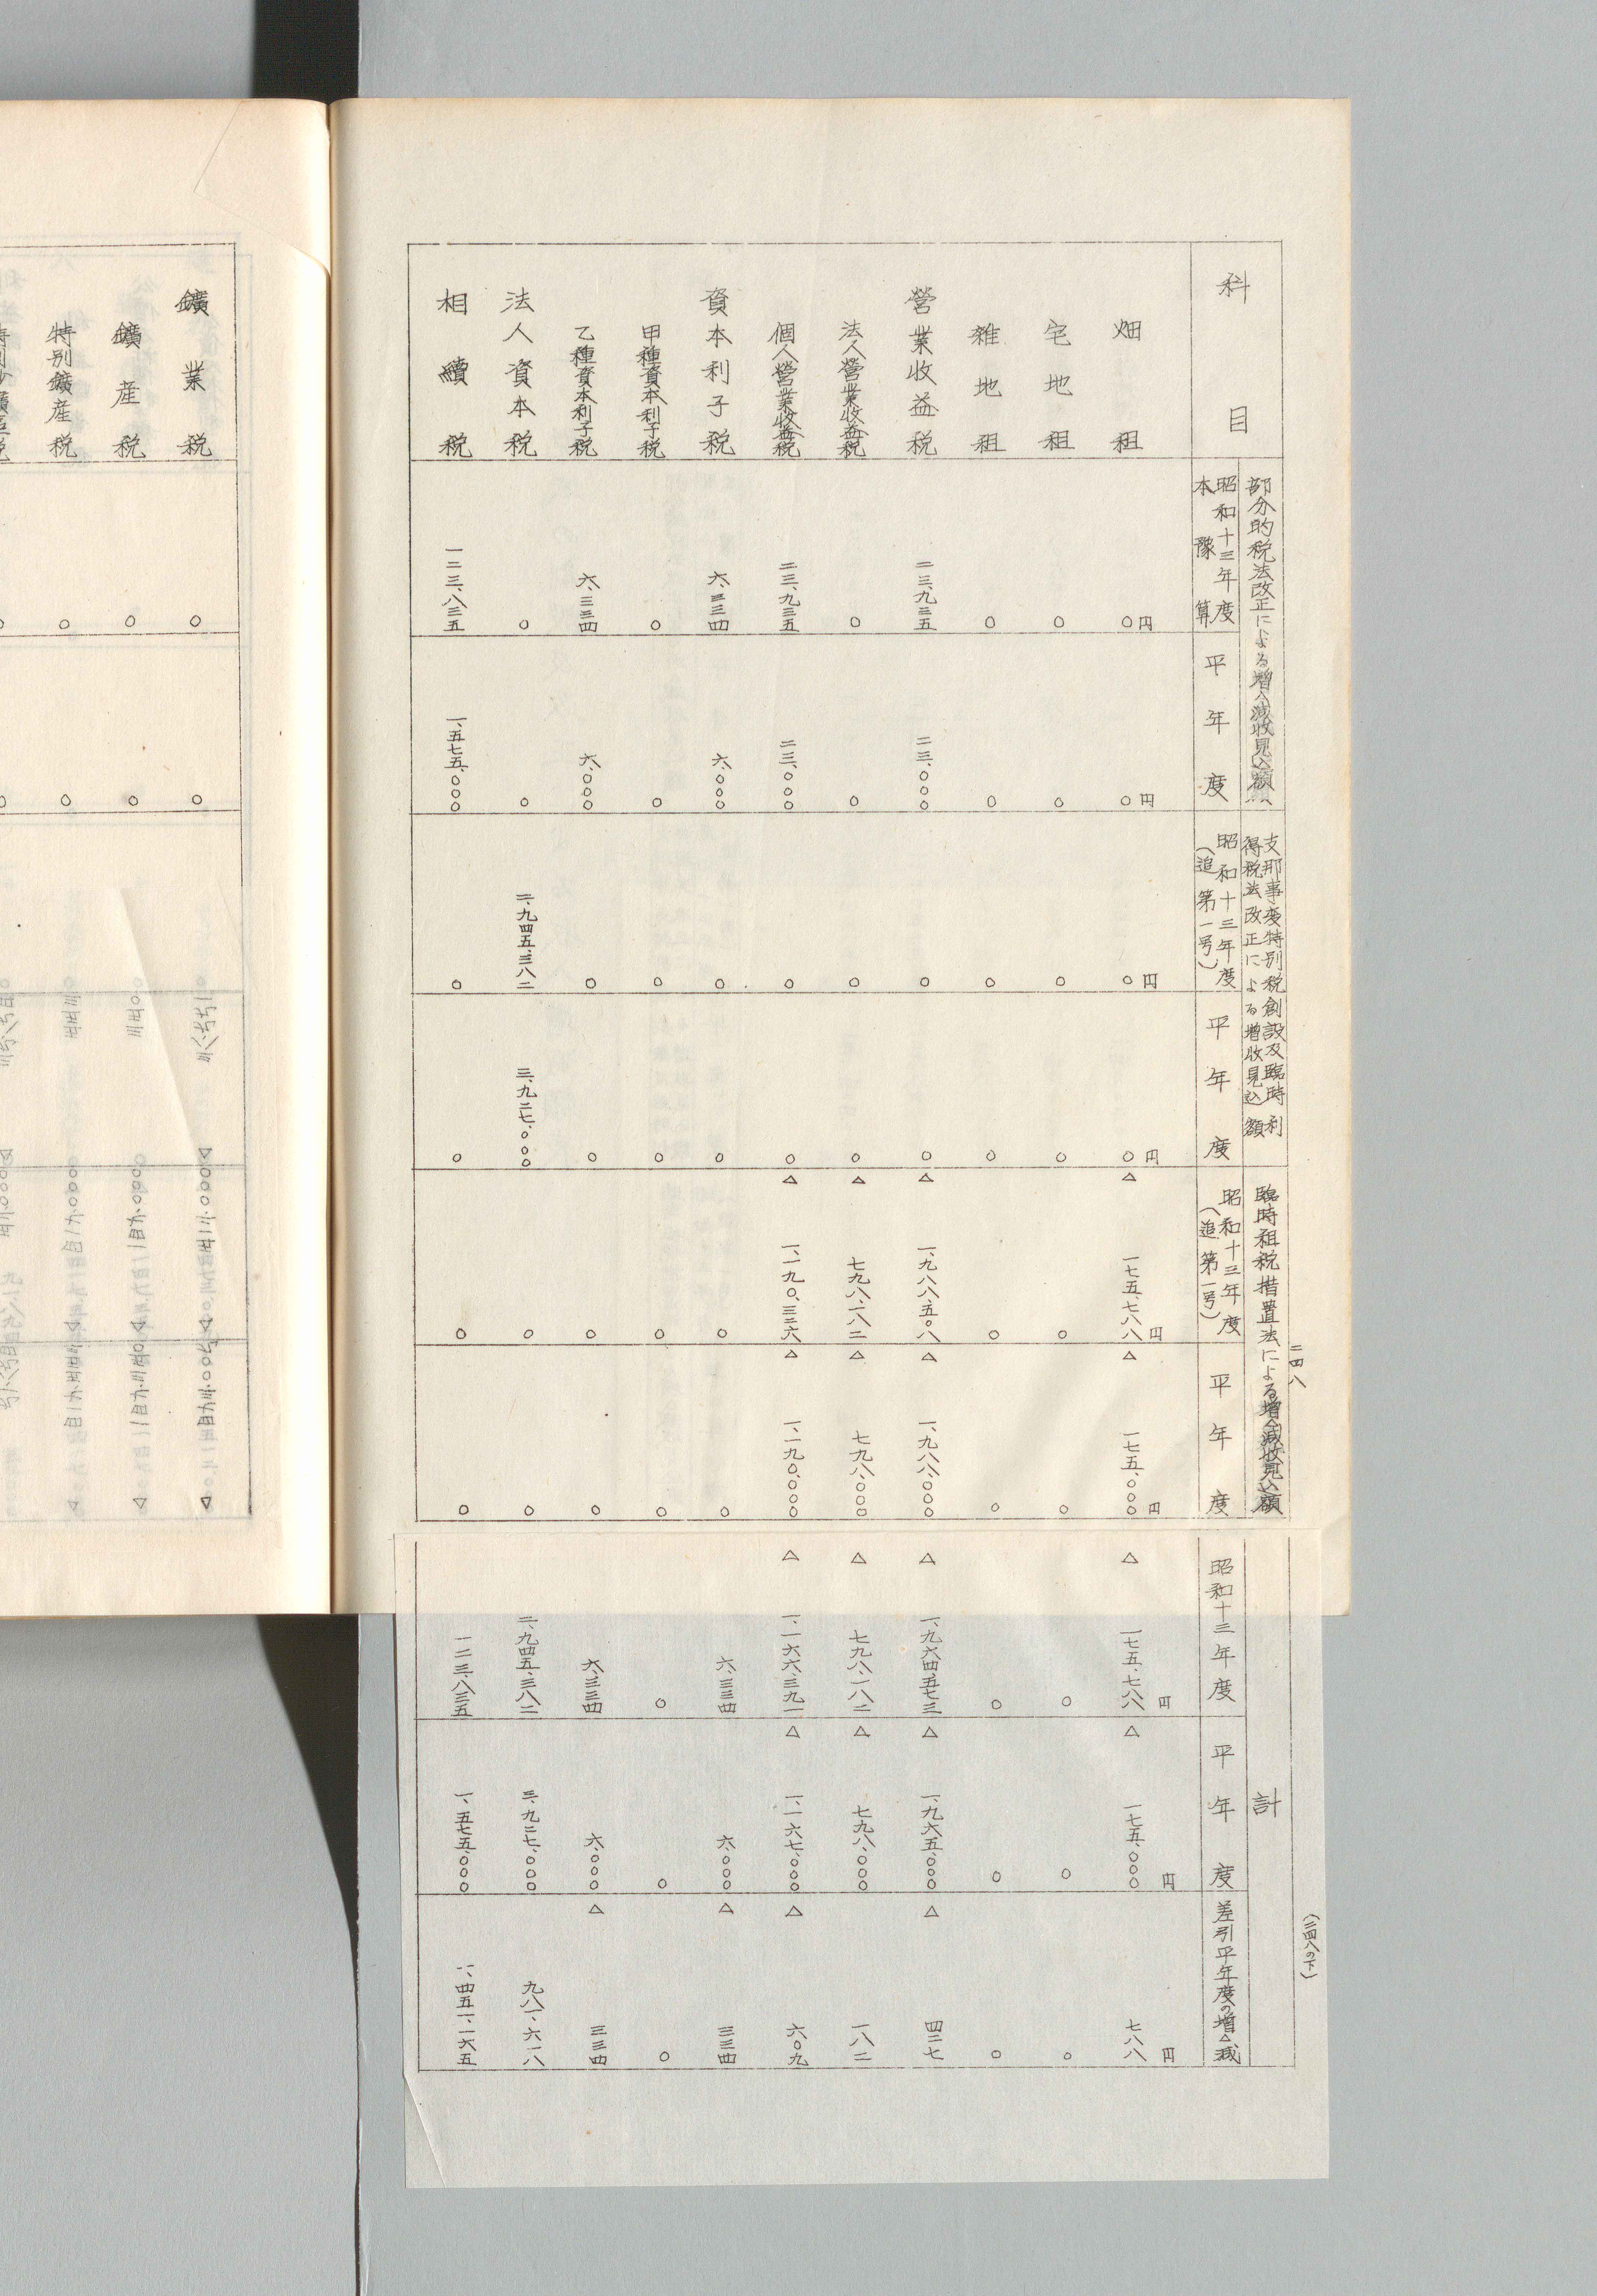 二四八
(二四八の下)
科目
部分的税法改正による増△減收見込額
昭和十三年度
本豫算
平年度
支那事変特別税創設及臨時利
得税法改正による増收見込額
昭和十三年度
(追第一号)
平年度
臨時租税措置法による増△減收見込額
昭和十三年度
(追第一号)
平年度
計
昭和十三年度
平年度
差引平年度の増△減
畑租 ○円 ○円 ○円 ○円 △一七五、七八八円 △一七五、○○○円 △一七五、七八八円 △一七五、○○○円 七八八円
宅地租 ○ ○ ○ ○ ○ ○ ○ ○ ○
雑地租 ○ ○ ○ ○ ○ ○ ○ ○ ○
營業收益税 二三、九三五 二三、○○○ ○ ○ △一、九八八、五○八 △一、九八八、○○○ △一、九六四、五七三 △一、九六五、○○○ △四二七
法人營業收益税 ○ ○ ○ ○ △七九八、一八二 △七九八、○○○ △七九八、一八二 △七九八、○○○ 一八二
個人營業收益税 二三、九三五 二三、○○○ ○ ○ △一、一九○、三二六 △一、一九○、○○○ △一、一六六、三九一 △一、一六七、○○○ △六○九
資本利子税 六、三三四 六、○○○ ○ ○ ○ ○ 六、三三四 六、○○○ △三三四
甲種資本利子税 ○ ○ ○ ○ ○ ○ ○ ○ ○
乙種資本利子税 六、三三四 六、○○○ ○ ○ ○ ○ 六、三三四 六、○○○ △三三四
法人資本税 ○ ○ 二、九四五、三八二 三、九二七、○○○ ○ ○ 二、九四五、三八二 三、九二七、○○○ 九八一、六一八
相續税 一二三、八三五 一、五七五、○○○ ○ ○ ○ ○ 一二三、八三五 一、五七五、○○○ 一、四五一、一六五
鑛業税 ○ ○
鑛産税 ○ ○
特別鑛産税 ○ ○